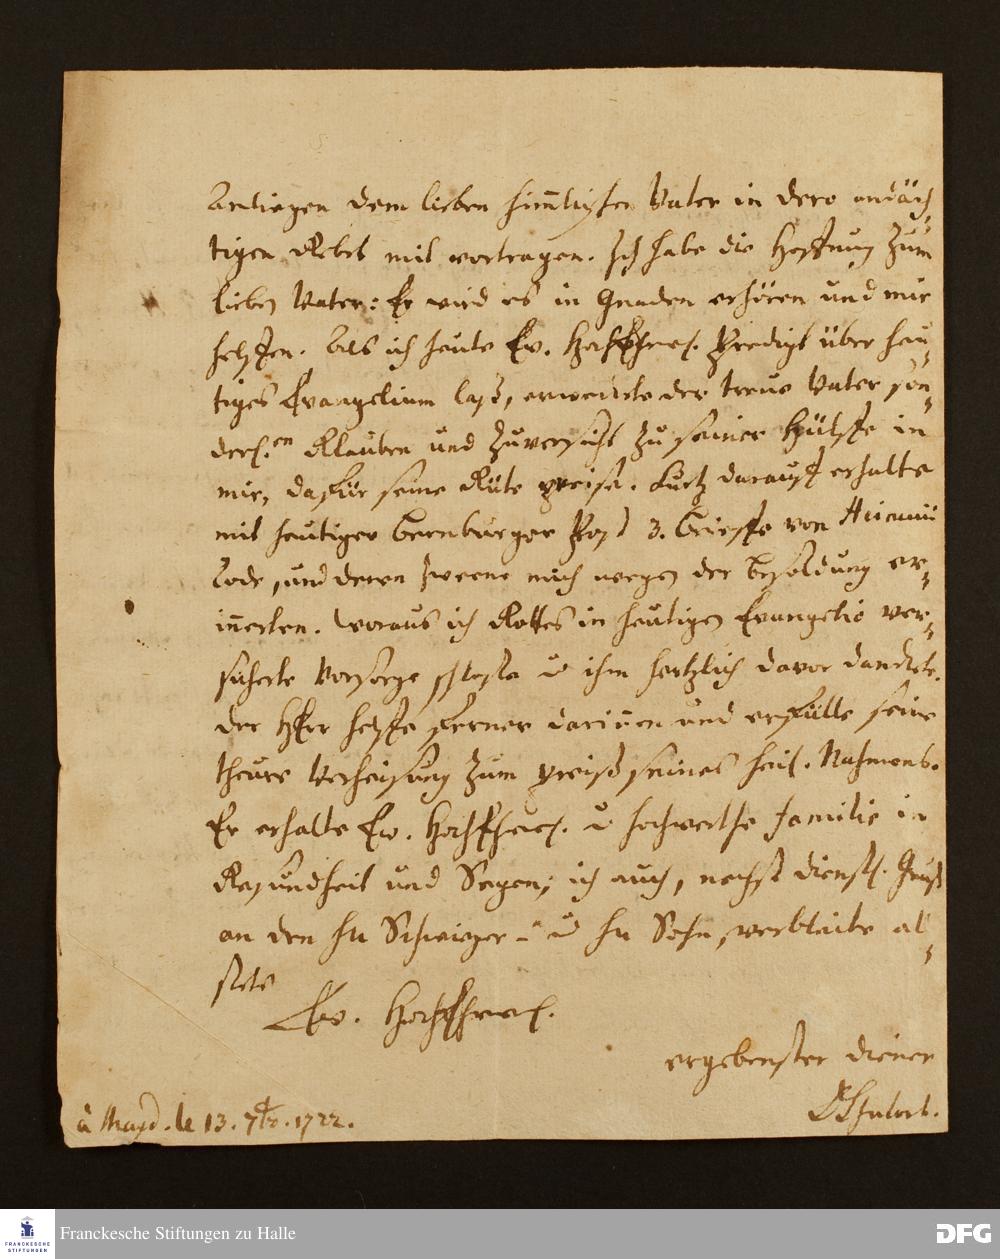 Anliegen dem lieben himlischen Vater in dero andäch-
tigen Gebet mit vortragen. Ich habe die Hoffnung zum
lieben Vater: Er wird es in Gnaden erhören und mir
helffen. Als ich heute Ew. HochEhrw. Predigt über heu-
tiges Evangelium laß, erweckte der treue Vater son-
derl.en Glauben und Zuversicht zu seiner Hülffe in
mir, dafür seine Güte preise. Kurtz darauff erhalte
mit heutiger Bernburger Post 3. Brieffe von
Tode, und deren zweene mich wegen der Besoldung er-
inerten. Woraus ich Gottes in heutigen Evangelio ver-
sicherte Vorsorge schloße u ihm hertzlich davor danckte.
der HErr helffe ferner darinnen und erfülle seine
theure Verheisung zum preiß seines heil. Nahmens.
Er erhalte Ew. HochEhrw. u hochwerthe familie in
Gesundheit und Segen; ich auch, nechst dienstl. Gruß
an den Hn Schwieger- u Hn Sohn, verbleibe al-
stets
Ew. HochEhrw.
ergebenster diener
à Magd. le 13. 7br. 1722.
Franckesche Stiftungen zu Halle
FRANCKESCHE
STIFTUNGEN
DFG